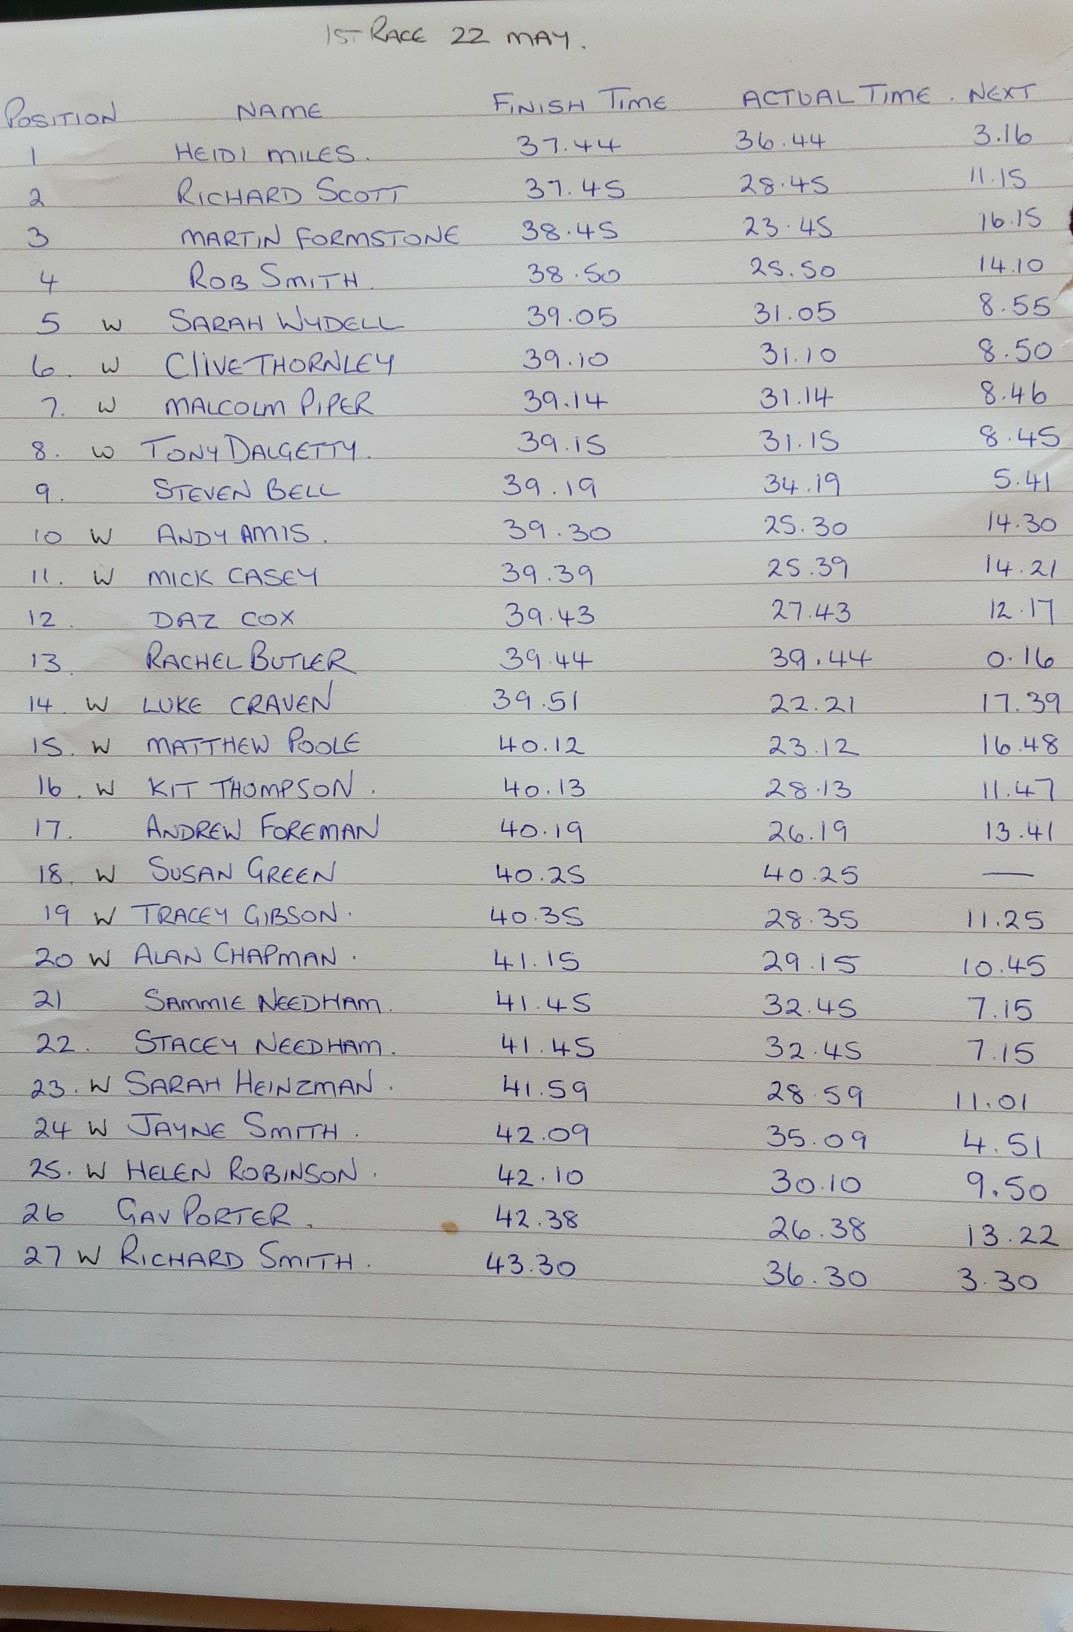 1ST RACE 22 MAY.
POSITION NAME FINISH TIME ACTUAL TIME. NEXT
1 HEIDI MILES. 37.44 36.44 3.16
2 RICHARD SCOTT 37.45 28.45 11.15
3 MARTIN FORMSTONE 38.45 23.45 16.15
4 ROB SMITH 38.50 25.50 14.10
5 W SARAH WYDELL 39.05 31.05 8.55
6. W CLIVE THORNLEY 39.10 31.10 8.50
7. W MALCOLM PIPER 39.14 31.14 8.46
8. W TONY DALGETTY. 39.15 31.15 8.45
9. STEVEN BELL 39.19 34.19 5.41
10 W ANDY AMIS. 39.30 25.30 14.30
11. W MICK CASEY 39.39 25.39 14.21
12. DAZ COX 39.43 27.43 12.17
13. RACHEL BUTLER 39.44 39.44 0.16
14. W LUKE CRAVEN 39.51 22.21 17.39
15. W MATTHEW POOLE 40.12 23.12 16.48
16. W KIT THOMPSON. 40.13 28.13 11.47
17. ANDREW FOREMAN 40.19 26.19 13.41
18. W SUSAN GREEN 40.25 40.25 —
19 W TRACEY GIBSON. 40.35 28.35 11.25
20 W ALAN CHAPMAN. 41.15 29.15 10.45
21 SAMMIE NEEDHAM. 41.45 32.45 7.15
22. STACEY NEEDHAM. 41.45 32.45 7.15
23. W SARAH HEINZMAN. 41.59 28.59 11.01
24 W JAYNE SMITH. 42.09 35.09 4.51
25. W HELEN ROBINSON. 42.10 30.10 9.50
26 GAV PORTER. 42.38 26.38 13.22
27 W RICHARD SMITH. 43.30 36.30 3.30